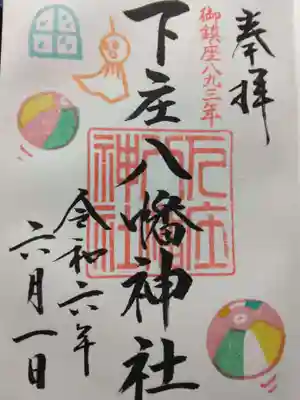 奉拝
御鎮座八九三年
下庄八幡神社
令和六年
六月一日
下庄
神社